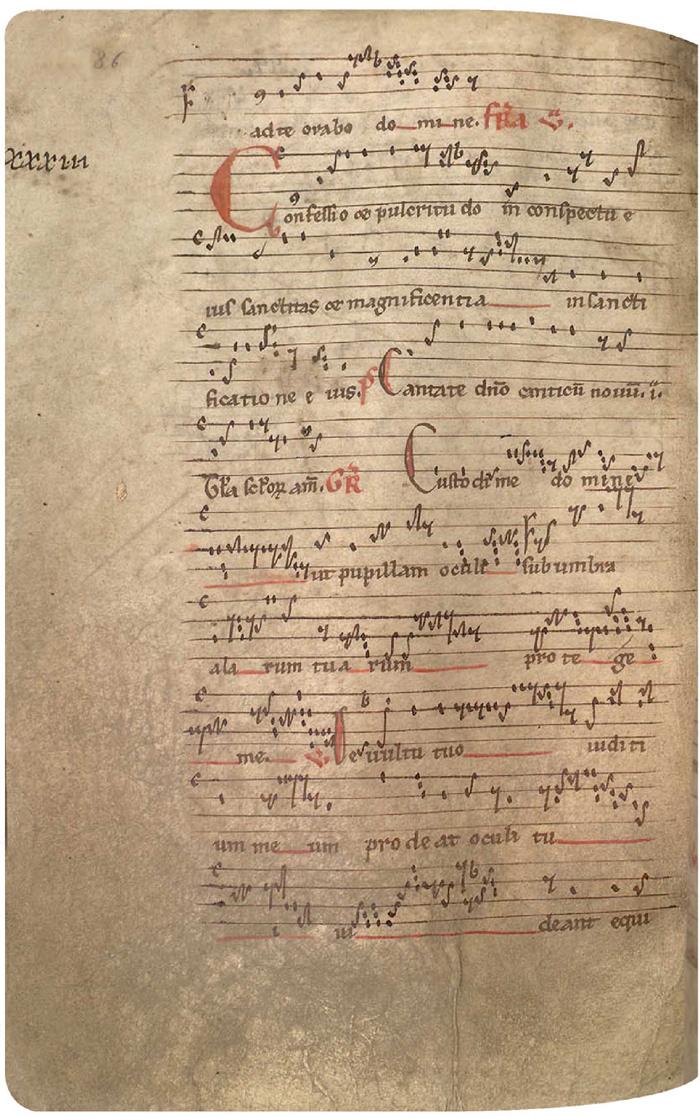 86
ad te orabo do mi ne. fr̃a
xxxiii
Confessio & pulcritu do in conspectu e
ius sanctitas & magnificentia in sancti
ficatio ne e ius. ps Cantate dn̄o canticū novū. i.
Gl̃a sc̃lor̨ am̄. GR̃ Custodi me do mine
ut pupillam oculi sub umbra
ala rum tua rum pro te ge
me. De vultu tuo iuditi
um me um pro de at oculi tu
ui deant equi